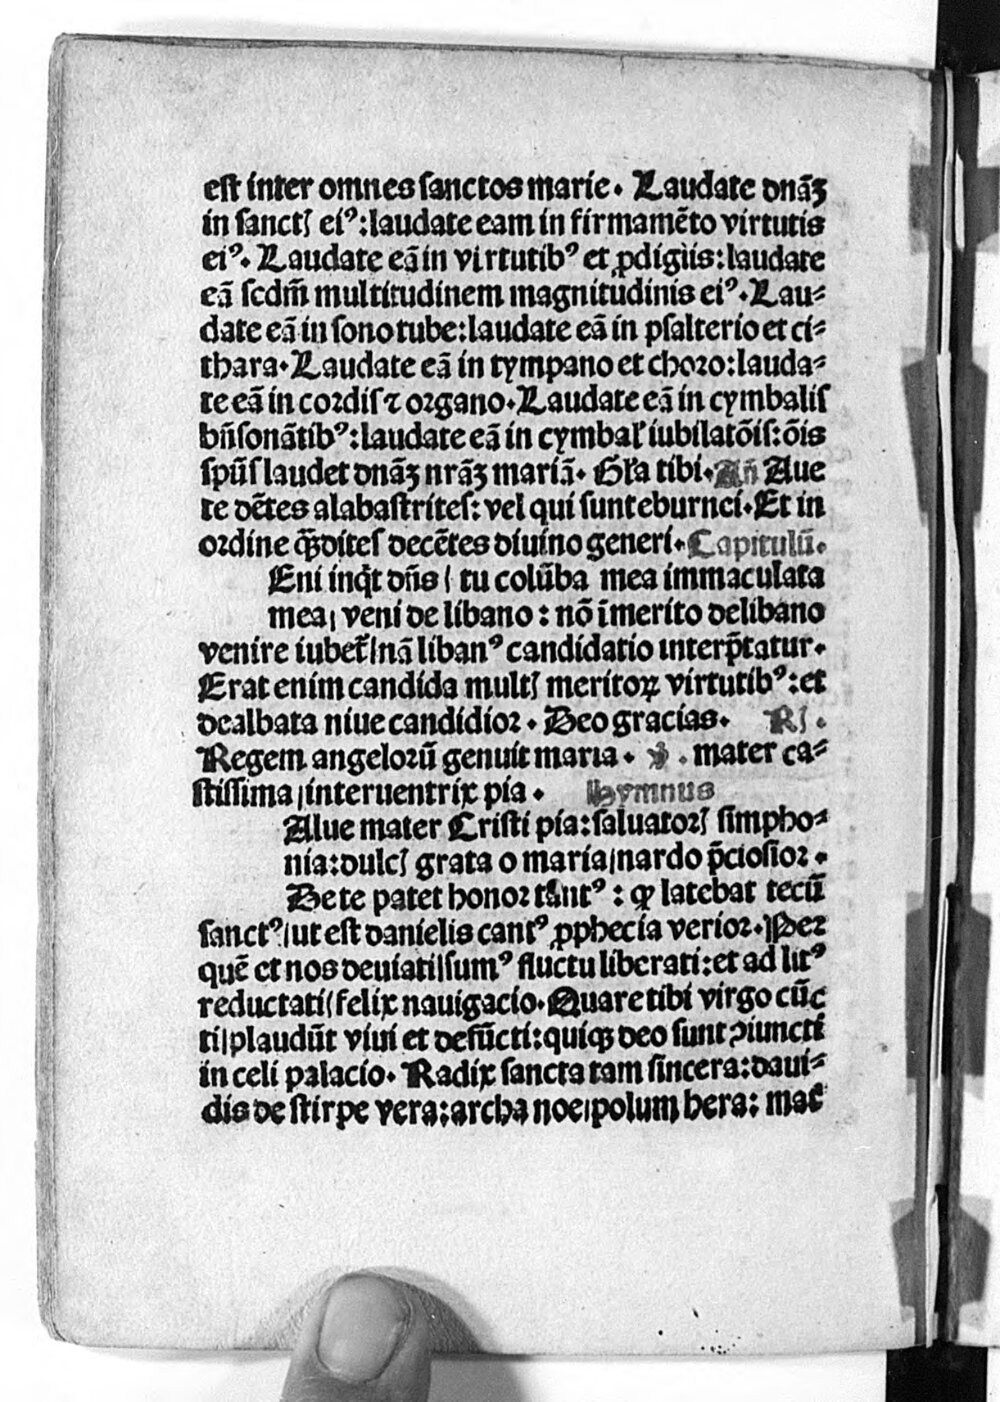 est inter omnes sanctos marie. Laudate dnãꝫ
in sanctꝭ eiꝰ: laudate eam in firmamẽto virtutis
eiꝰ. Laudate eã in virtutibꝰ et ꝓdigiis: laudate
eã scdm̃ multitudinem magnitudinis eiꝰ. Lau⸗
date eã in sono tube: laudate eã in psalterio et ci⸗
thara. Laudate eã in tympano et choro: lauda⸗
te eã in cordis ⁊ organo. Laudate eã in cymbalis
bñsonãtibꝰ: laudate eã in cymbał iubilatõis: õis
spũs laudet dnãꝫ nrãꝫ mariã. Gła tibi. Añ Aue
te dẽtes alabastrites: vel qui sunt eburnei. Et in
ordine q̃ꝫdites decẽtes diuino generi. Capitulũ.
Eni inqͥt dñs / tu colũba mea immaculata
mea / veni de libano: nõ ĩmerito de libano
venire iubet̃ / nã libanꝰ candidatio interp̃tatur.
Erat enim candida multꝭ meritoꝝ virtutibꝰ: et
dealbata niue candidior. Deo gracias. Rꝭ.
Regem angelorũ genuit maria. ℣. mater ca⸗
stissima / interuentrix pia. Hymnus
Alue mater Cristi pia: saluatorꝭ simpho⸗
nia: dulcꝭ grata o maria / nardo p̃ciosior.
De te patet honor tãntꝰ: qͥ latebat tecũ
sanctꝰ / ut est danielis cantꝰ ꝓphecia verior. Per
quẽ et nos deuiati / sumꝰ fluctu liberati: et ad litꝰ
reductati / felix nauigacio. Quare tibi virgo cũc
ti / plaudũt viui et defũcti: quiqꝫ deo sunt ꝯiuncti
in celi palacio. Radix sancta tam sincera: daui⸗
dis de stirpe vera: archa noe / polum hera: mac